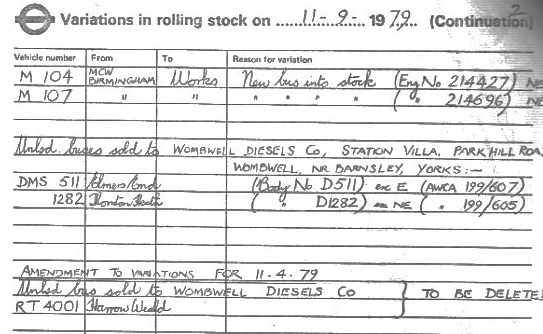 2
Variations in rolling stock on ......11-9-...... 1979. (Continuation)
Vehicle number From To Reason for variation
M 104 MCW BIRMINGHAM Works New bus into stock (Eng No 214427) NE
M 107 " " " " " " ( " 214696) NE
Unlsd. buses sold to WOMBWELL DIESELS Co, STATION VILLA, PARK HILL ROA
WOMBWELL, NR. BARNSLEY, YORKS:—
DMS 511 Elmers End (Body No D511) ex E (AWCA 199/607)
1282 Thornton Heath ( " D1282) ex NE ( " 199/605)
AMENDMENT TO VARIATIONS FOR 11-4-79
Unlsd bus sold to WOMBWELL DIESELS Co } TO BE DELETE
RT 4001 Harrow Weald